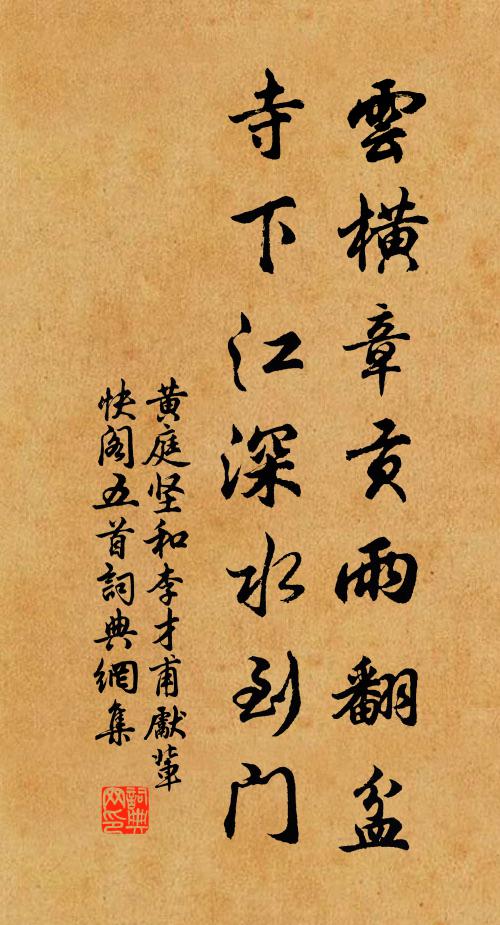 雲橫章貢雨翻盆
寺下江深水到门
黄庭坚和李才甫獻輩
快阁五首詞典網集
詞典网印